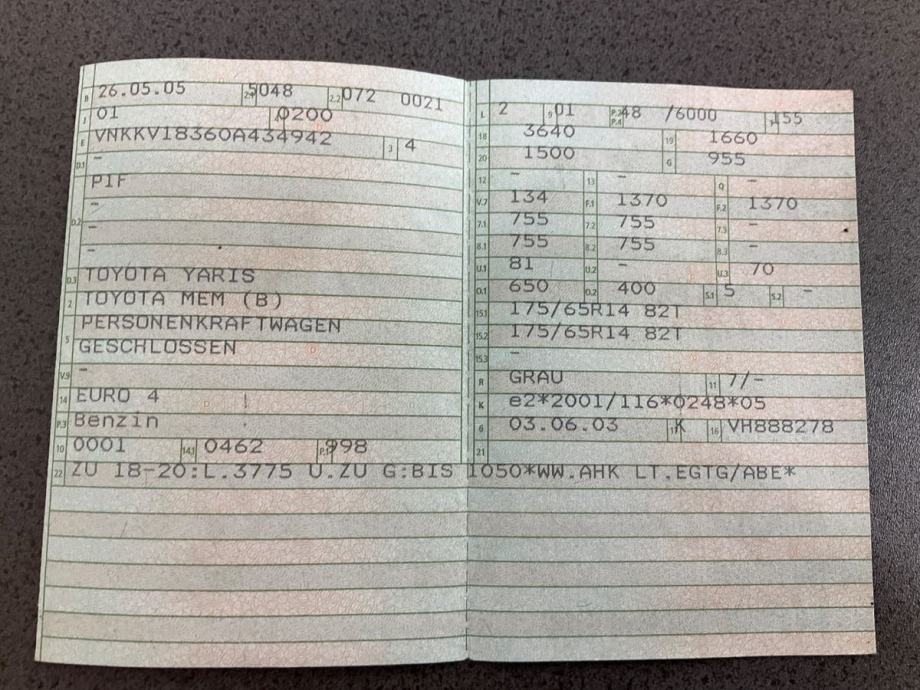 B 26.05.05 2.1 5048 2.2 072 0021
J 01 4 0200
E VNKKV18360A434942 3 4
D.1 -
P1F
D.2 -
-
-
D.3 TOYOTA YARIS
2 TOYOTA MEM (B)
5 PERSONENKRAFTWAGEN
GESCHLOSSEN
V.9 -
14 EURO 4
P.3 Benzin
10 0001 14.1 0462 P.1 998
L 2 9 01 P.2 P.4 48 /6000 T 155
18 3640 19 1660
20 1500 G 955
12 - 13 - Q -
V.7 134 F.1 1370 F.2 1370
7.1 755 7.2 755 7.3 -
8.1 755 8.2 755 8.3 -
U.1 81 U.2 - U.3 70
O.1 650 O.2 400 S.1 5 S.2 -
15.1 175/65R14 82T
15.2 175/65R14 82T
15.3 -
R GRAU 11 7/-
K e2*2001/116*0248*05
6 03.06.03 17 K 16 VH888278
21
22 ZU 18-20:L.3775 U.ZU G:BIS 1050*WW.AHK LT.EGTG/ABE*